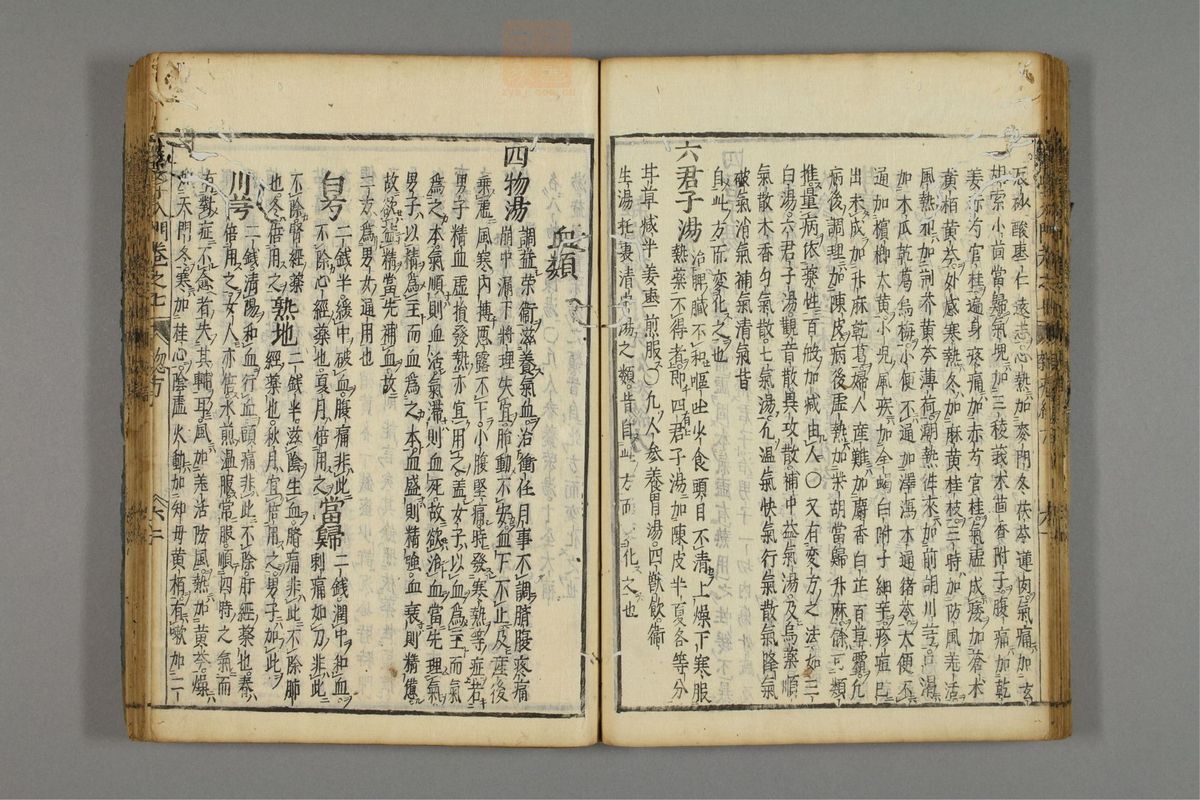 辰砂酸棗仁遠志心熱加麥門冬茯苓蓮肉氣痛加玄
胡索小茴當歸氣塊加三稜莪朮茴香附子腹痛加乾
姜芍官桂遍身疼痛加赤芍官桂氣虛成痰加蒼朮
黄栢黄芩外感寒熱冬加麻黄桂枝三時加防風羌活
風熱加荊芥黄芩薄荷潮熱徃來加前胡川芎
加木瓜乾葛烏梅小便不通加澤瀉木通猪苓大便不
通加檳榔大黄小児風疾加全蝎白附子細辛疹痘已
出未成加升麻乾葛婦人産難加麝香白芷百草霜凡
病後調理加陳皮病後虛熱加柴胡當歸升麻餘可類
推量病依薬性百般加减由人〇又有変方之法如三
白湯六君子湯觀音散異攻散補中益氣湯及烏薬順
氣散木香勻氣散七氣湯凡温氣快氣行氣散氣降氣
破氣消氣補氣清氣皆
自此方而変化之也
六君子湯 治脾臓不和嘔吐少食頭目不清上燥下寒服
熱薬不得者即四君子湯加陳皮半夏各等分
甘草减半姜棗煎服〇凡人参養胃湯四獣飲衛
生湯托裏清中湯之類皆自此方而変化之也
血類
四物湯 調益榮衛滋養氣血治衝任月事不調臍腹疼痛
崩中漏下將理失宜胎動不安血下不止及産後
乗虛風寒内搏悪露不下小腹堅痛時發寒熱等症若
男子精血虛損發熱亦宜用之蓋女子以血爲主而氣
爲之本氣順則血活氣滯則血死故欲治血當先理氣
男子以精爲主而血爲之本血盛則精強血衰則精憊
故欲益精當先補血故
二方爲男女通用也
白芍 二銭半緩中破血腹痛非此
不除心經薬也夏月倍用之 當歸 二銭潤中和血
刺痛如刀非此
不除腎經薬
也冬倍用之 熟地 二銭半滋陰生血臍痛非此不除肺
經薬也秋月宜倍用之男子加此
川芎 二銭清陽和血行血頭痛非此不除肝經薬也春
倍用之女人亦倍水煎温服常服順四時之氣而
有對症不愈者失其輔耳風加羌活防風熱加黄芩燥
加天門冬寒加桂心陰虛火動加知母黄栢有嗽加二丁